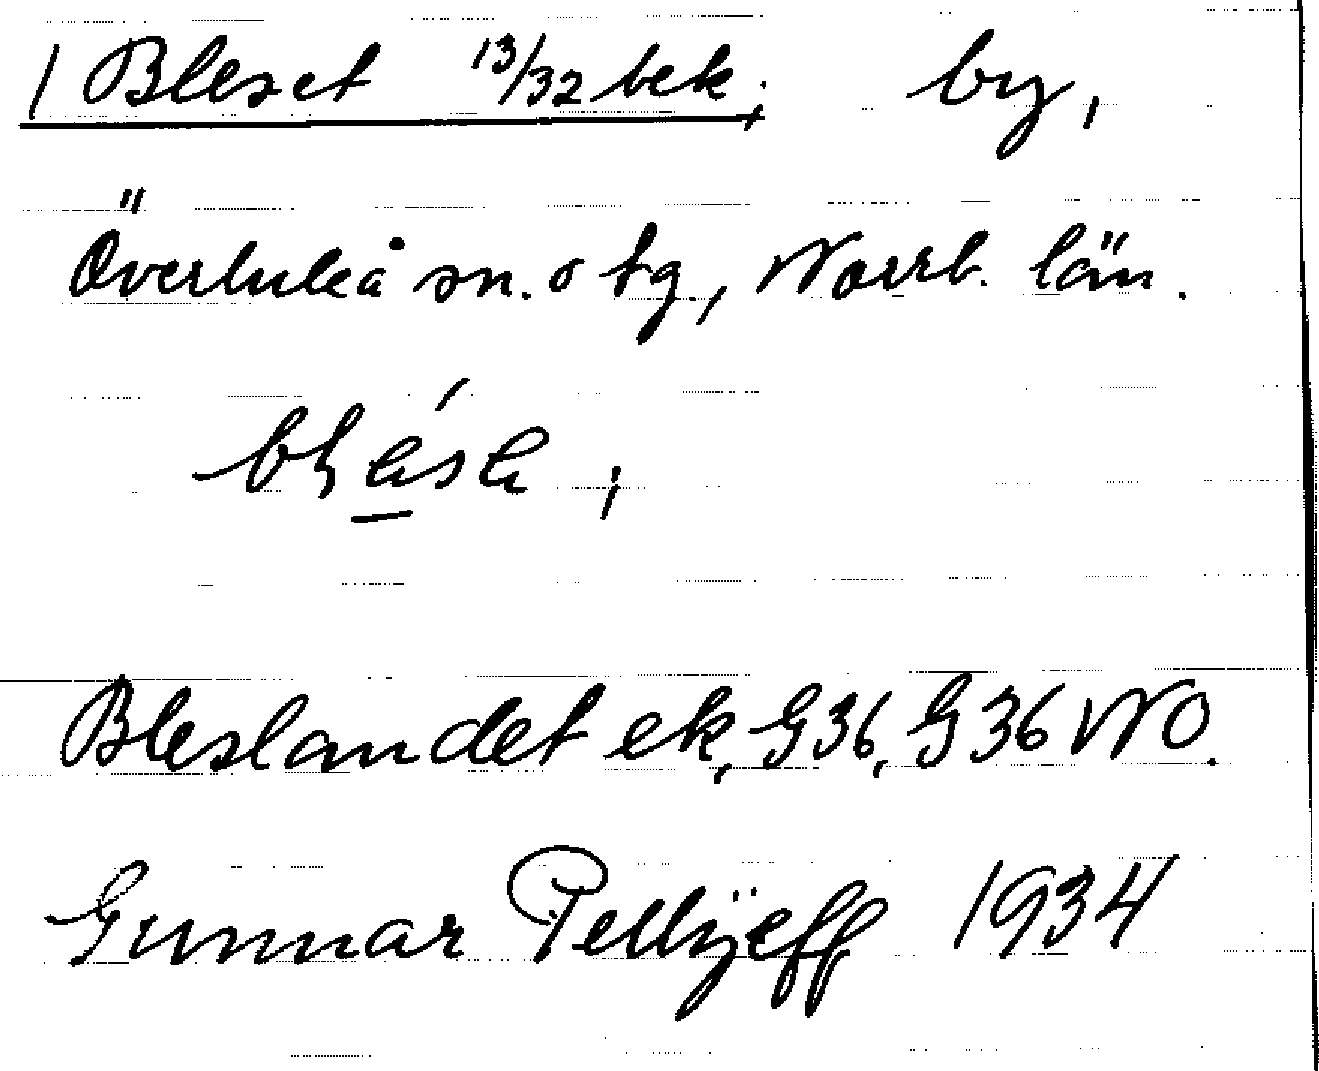 1 Bleset 13/32 bek; by,
Överluleå sn. o tg., Norrb. län.
Bleslandet ek, G36, G36 NO.
Gunnar Pellijeff 1934